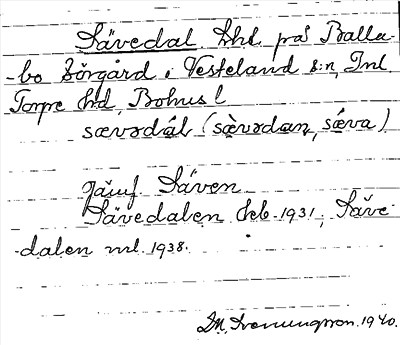 Sävedal, lhl. på Balla-
-bo Sörgård i Vesteland s:n, Inl.
Torpe hd, Bohus l
sævədàl (sæ̀vədan, sæ̀va)
Jämf. Säven
Sävedalen Geb. 1931; Säve-
-dalen nrl. 1938.
1940.